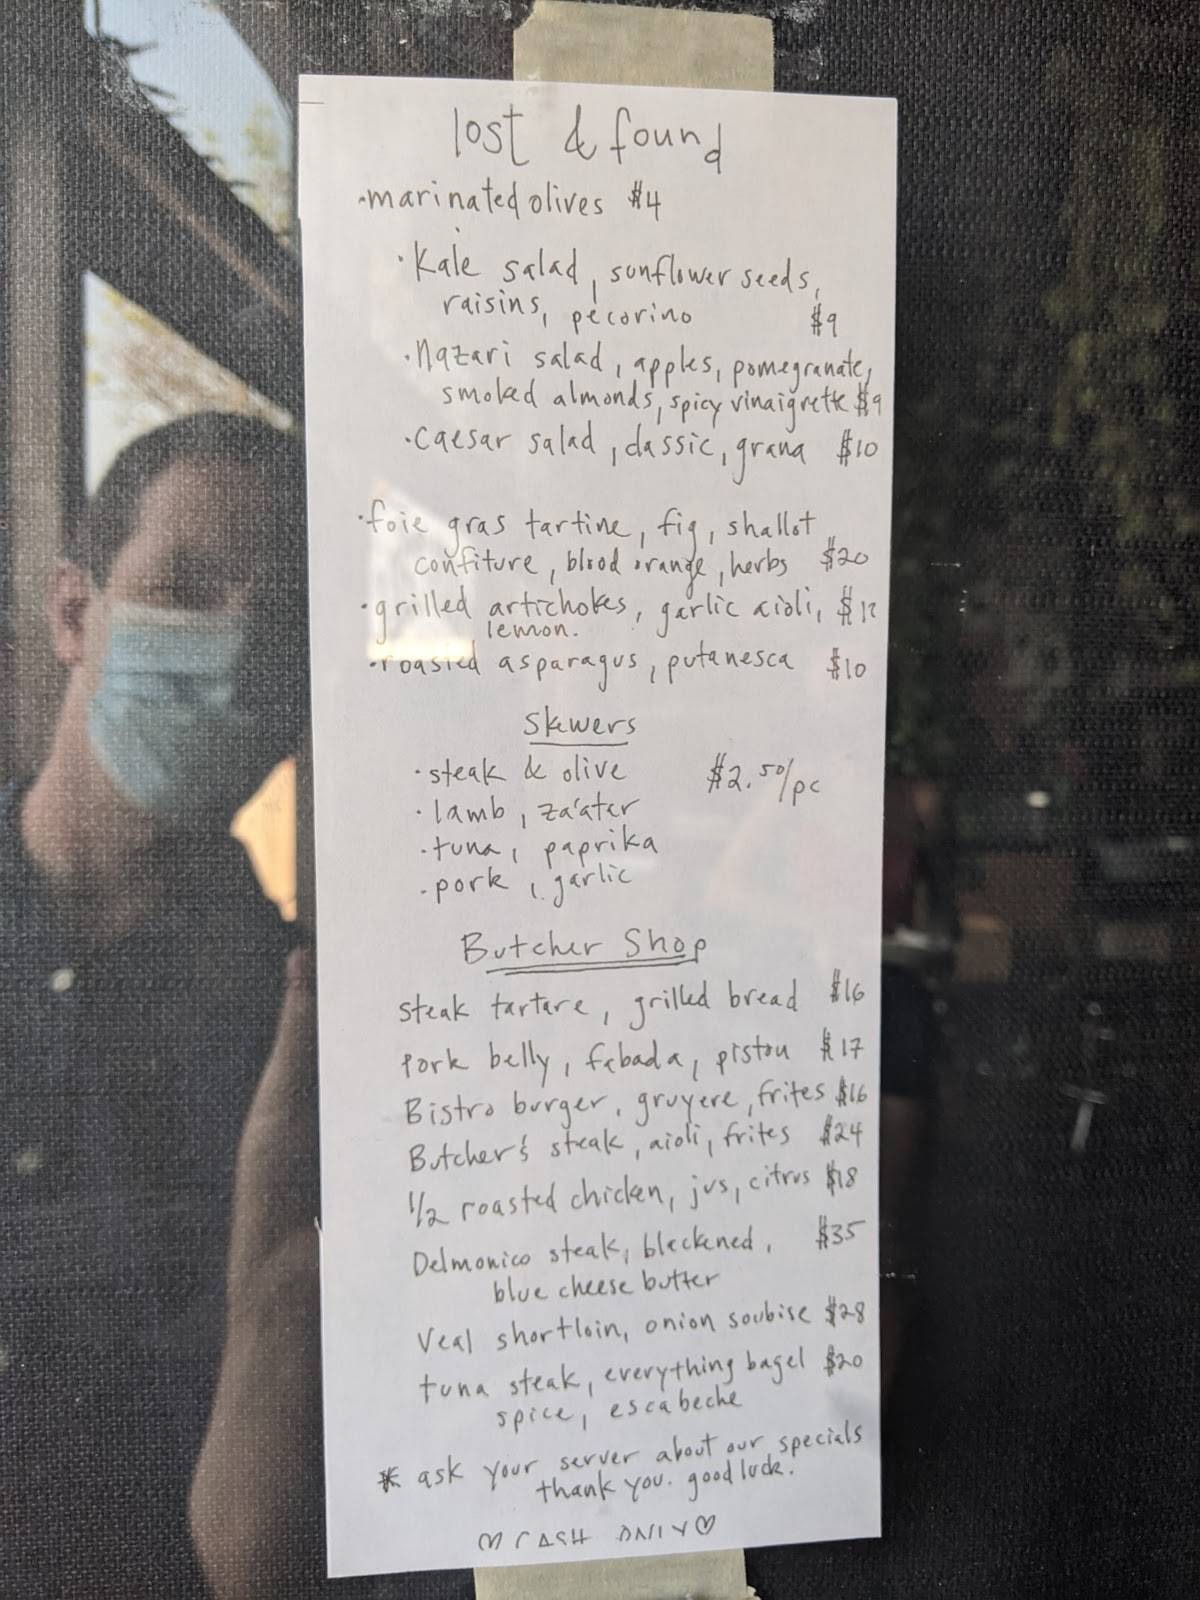 lost & found
·marinated olives $4
·Kale salad, sunflower seeds,
raisins, pecorino $9
·Nazari salad, apples, pomegranate,
smoked almonds, spicy vinaigrette $9
·caesar salad, classic, grana $10
·foie gras tartine, fig, shallot
confiture, blood orange, herbs $20
·grilled artichokes, garlic aioli, $12
lemon.
·roasted asparagus, putanesca $10
Skewers
·steak & olive $2.50/pc
·lamb, za'atar
·tuna, paprika
·pork, garlic
Butcher Shop
steak tartare, grilled bread $16
pork belly, fabada, pistou $17
Bistro burger, gruyere, frites $16
Butcher's steak, aioli, frites $24
1/2 roasted chicken, jus, citrus $18
Delmonico steak, blackened, $35
blue cheese butter
Veal shortloin, onion soubise $28
tuna steak, everything bagel $20
spice, escabeche
* ask your server about our specials
thank you. good luck.
♡ CASH ONLY ♡